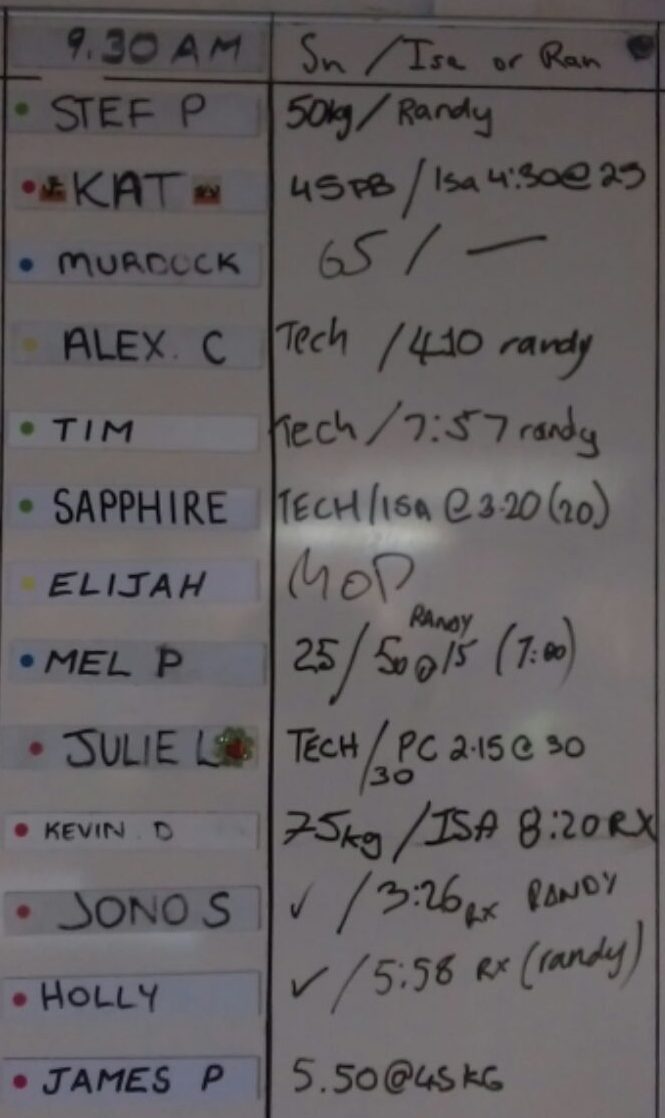 9.30 AM Sn / Isa or Ran
STEF P 50kg / Randy
KAT 45PB / Isa 4:30@25
MURDOCK 65 / —
ALEX. C Tech / 4.10 randy
TIM Tech / 7:57 randy
SAPPHIRE TECH/ISA @ 3.20 (20)
ELIJAH MOD
RANDY
MEL P 25 / 50@15 (7:00)
JULIE L TECH / PC 2.15 @ 30
30
KEVIN. D 75kg / ISA 8:20 RX
JONO S ✓ / 3:26 RX RANDY
HOLLY ✓ / 5:58 RX (randy)
JAMES P 5.50@45KG